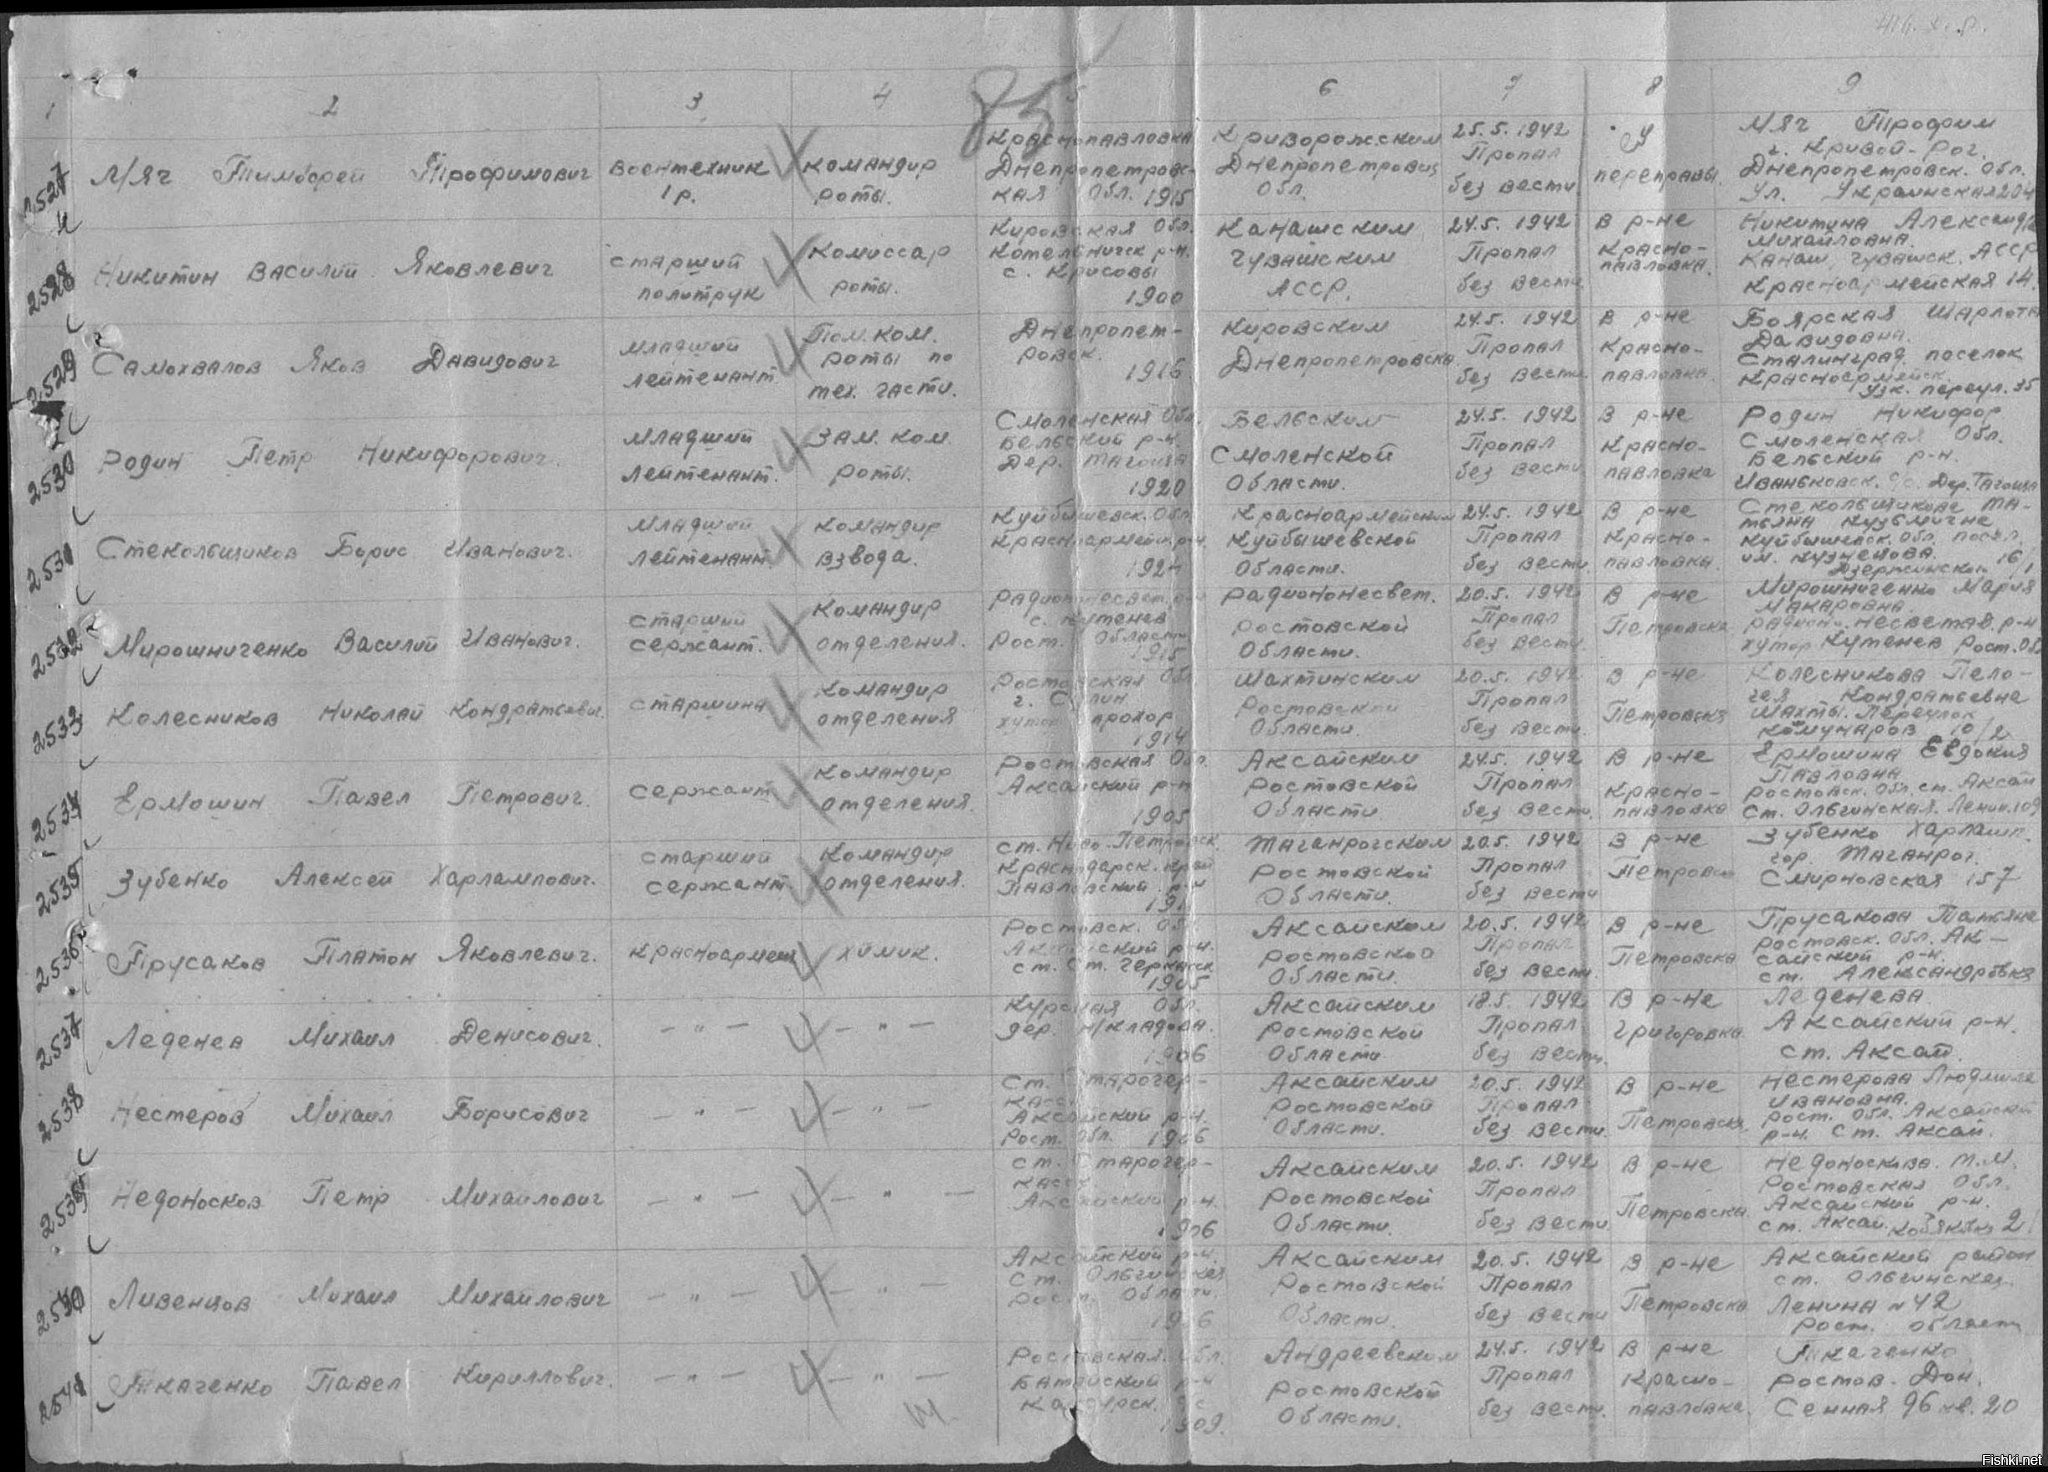 1 2 3 4 5 6 7 8 9
85
2527 Мяч Тимофей Трофимович
воентехник
1 р.
командир
роты.
Краснопавловка
Днепропетровс-
кая Обл. 1915
Криворожским
Днепропетровск
Обл.
25.5.1942
Пропал
без вести
У
переправы.
Мяч Трофим
г. Кривой-Рог.
Днепропетровск. Обл.
ул. Украинская 204
2528 Никитин Василий Яковлевич
старший
политрук
комиссар
роты.
Кировская Обл.
Котельничск р-н.
с. Крисовы
1900
Канашским
Чувашским
АССР.
24.5. 1942
Пропал
без вести
В р-не
Красно-
павловка.
Никитина Александра
Михайловна.
Канаш, Чувашск. АССР
Красноармейская 14.
2529 Самохвалов Яков Давидович
младший
лейтенант
Пом. ком.
роты по
тех. части.
Днепропет-
ровск.
1916
Кировским
Днепропетровска
24.5. 1942
Пропал
без вести
В р-не
Красно-
павловка.
Боярская Шарлота
Давидовна.
Сталинград поселок
Красноармейск.
Узк. переул. 35
2530 Родин Петр Никифорович.
младший
лейтенант.
Зам. ком.
роты.
Смоленская Обл.
Бельский р-н.
Дер.
1920
Бельским
Смоленской
Области.
24.5. 1942
Пропал
без вести
В р-не
Красно-
павловка
Родин Никифор
Смоленская Обл.
Бельский р-н.
Иваньковск. с/с. Дер.
2531 Стекольщиков Борис Иванович.
младший
лейтенант
командир
взвода.
Куйбышевск. Обл.
Красноармейск р-н.
Красноармейским
Куйбышевской
Области.
24.5. 1942
Пропал
без вести.
В р-не
Красно-
павловка.
Стекольщикове Та-
тьяна Кузьминне
Куйбышевск. Обл. посел.
им. Кузнецова.
Дзержинская 16/1
2532 Мирошниченко Василий Иванович.
старший
сержант.
Командир
отделения.
с. Кутенев
Рост. Области
1915
Радионо-Несвет.
Ростовской
Области.
20.5. 1942
Пропал
без вести.
В р-не
Петровска
Мирошниченко Мария
Макаровна.
Радионо-Несветав. р-н
хутор Кутенев Рост. Обл.
2533 Колесников Николай Кондратьевич.
старшина
Командир
отделения
Ростовская Обл.
1914
Шахтинским
Ростовской
Области.
20.5. 1942
Пропал
без вести.
В р-не
Петровска
Колесникова Пела-
гея Кондратьевна
Шахты. Переулок
Комунаров 10/2
2534 Ермошин Павел Петрович.
сержант
Командир
отделения.
Ростовская Обл.
Аксайский р-н
1905
Аксайским
Ростовской
Области.
24.5. 1942
Пропал
без вести.
В р-не
Красно-
павловка
Ермошина Евдокия
Павловна.
Ростовск. Обл. ст. Аксай
ст. Ольгинская. Ленин. 109
2535 Зубенко Алексей Харлампович.
старший
сержант
Командир
отделения.
ст. Ново-Петровск.
Краснодарск. край
Павловский р-н
Таганрогским
Ростовской
Области.
20.5. 1942
Пропал
без вести
В р-не
Петровска
Зубенко Харламп.
гор. Таганрог.
Смирновская 157
2536 Прусаков Платон Яковлевич.
красноармеец
химик.
Ростовск. Обл.
Аксайский р-н.
ст. Ст. Черкасск
1905
Аксайским
Ростовской
Области.
20.5. 1942
Пропал
без вести.
В р-не
Петровска
Прусакова Татьяна
Ростовск. Обл. Ак-
сайский р-н.
ст. Александровка
2537 Леденев Михаил Денисович.
— " —
— " —
Курская Обл.
дер.
1906
Аксайским
Ростовской
Области
18.5. 1942
Пропал
без вести.
В р-не
Григоровка.
Леденева
Аксайский р-н.
ст. Аксай.
2538 Нестеров Михаил Борисович
— " —
— " —
ст. Старочер-
касск
Аксайский р-н.
Рост. Обл. 1906
Аксайским
Ростовской
Области.
20.5. 1942
Пропал
без вести.
В р-не
Петровска.
Нестерова Людмила
Ивановна.
Рост. Обл. Аксайский
р-н. ст. Аксай.
2539 Недоносков Петр Михайлович
— " —
— " —
ст. Старочер-
касск
Аксайский р-н.
1906
Аксайским
Ростовской
Области.
20.5. 1942
Пропал
без вести
В р-не
Петровска.
Недоноскова. М.М.
Ростовская Обл.
Аксайский р-н.
ст. Аксай. 2
2540 Ливенцов Михаил Михайлович
— " —
— " —
Аксайский р-н.
ст. Ольгинская
Рост. Области.
Аксайским
Ростовской
Области.
20.5. 1942
Пропал
без вести
В р-не
Петровска
Аксайский район
ст. Ольгинская.
Ленина № 42
Рост. области
2541 Ткаченко Павел Кириллович.
— " —
— " —
Ростовская Обл.
Батайский р-н
1909.
Андреевским
Ростовской
Области.
24.5. 1942
Пропал
без вести.
В р-не
Красно-
павловка.
Ткаченко
Ростов-Дон.
Сенная 96 кв. 20
Fishki.net